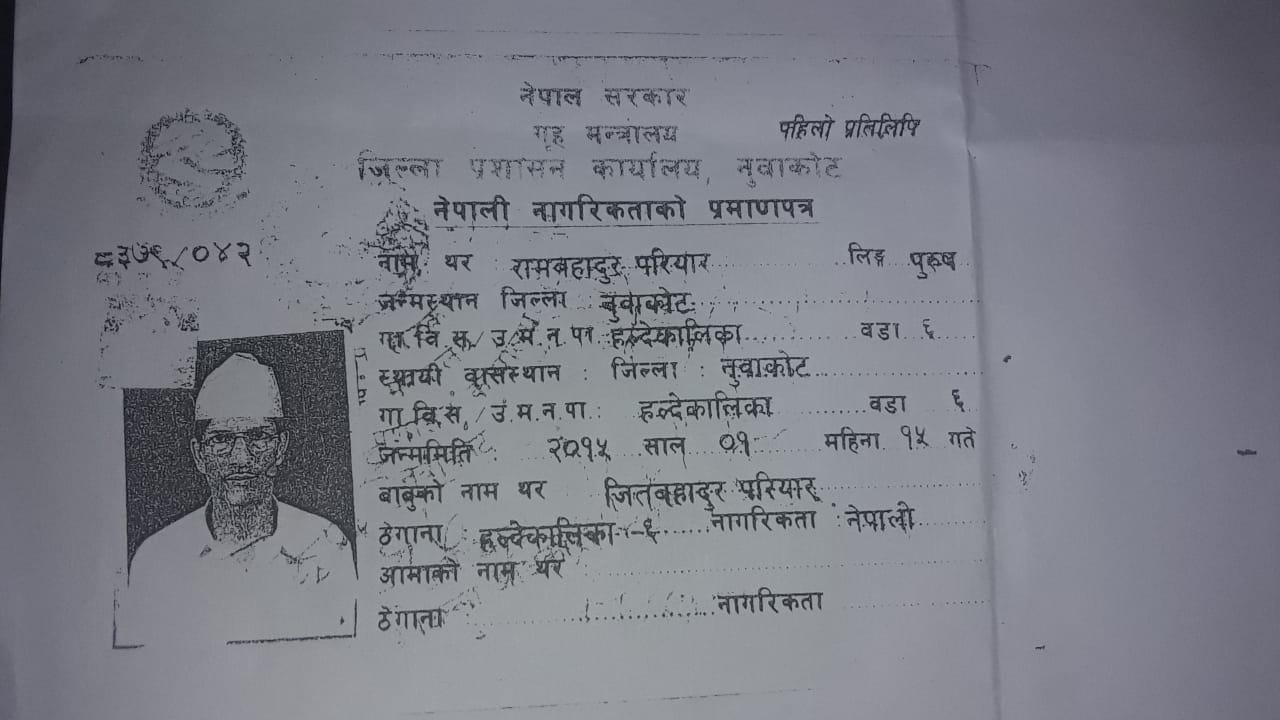 नेपाल सरकार
गृह मन्त्रालय पहिलो प्रतिलिपि
जिल्ला प्रशासन कार्यालय, नुवाकोट
नेपाली नागरिकताको प्रमाणपत्र
८३७९/०४३
नाम, थर : रामबहादुर परियार लिङ्ग पुरुष
जन्मस्थान जिल्ला : नुवाकोट
गा.वि.स./उ.म.न.पा हल्देकालिका वडा ६
स्थायी वासस्थान : जिल्ला : नुवाकोट
गा.वि.स./उ.म.न.पा. : हल्देकालिका वडा ६
जन्ममिति : २०१५ साल ०१ महिना १५ गते
बाबुको नाम थर जितबहादुर परियार
ठेगाना : हल्देकालिका -६ नागरिकता : नेपाली
आमाको नाम थर
ठेगाना नागरिकता